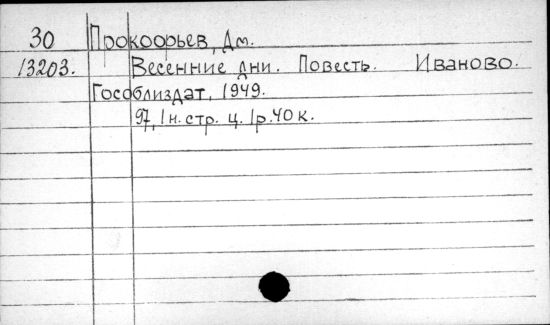 30 Прокофьев, Дм.
13203. Весенние дни. Повесть. Иваново.
Гособлиздат, 1949.
97, 1 н. стр. ц. 1р. 40 к.